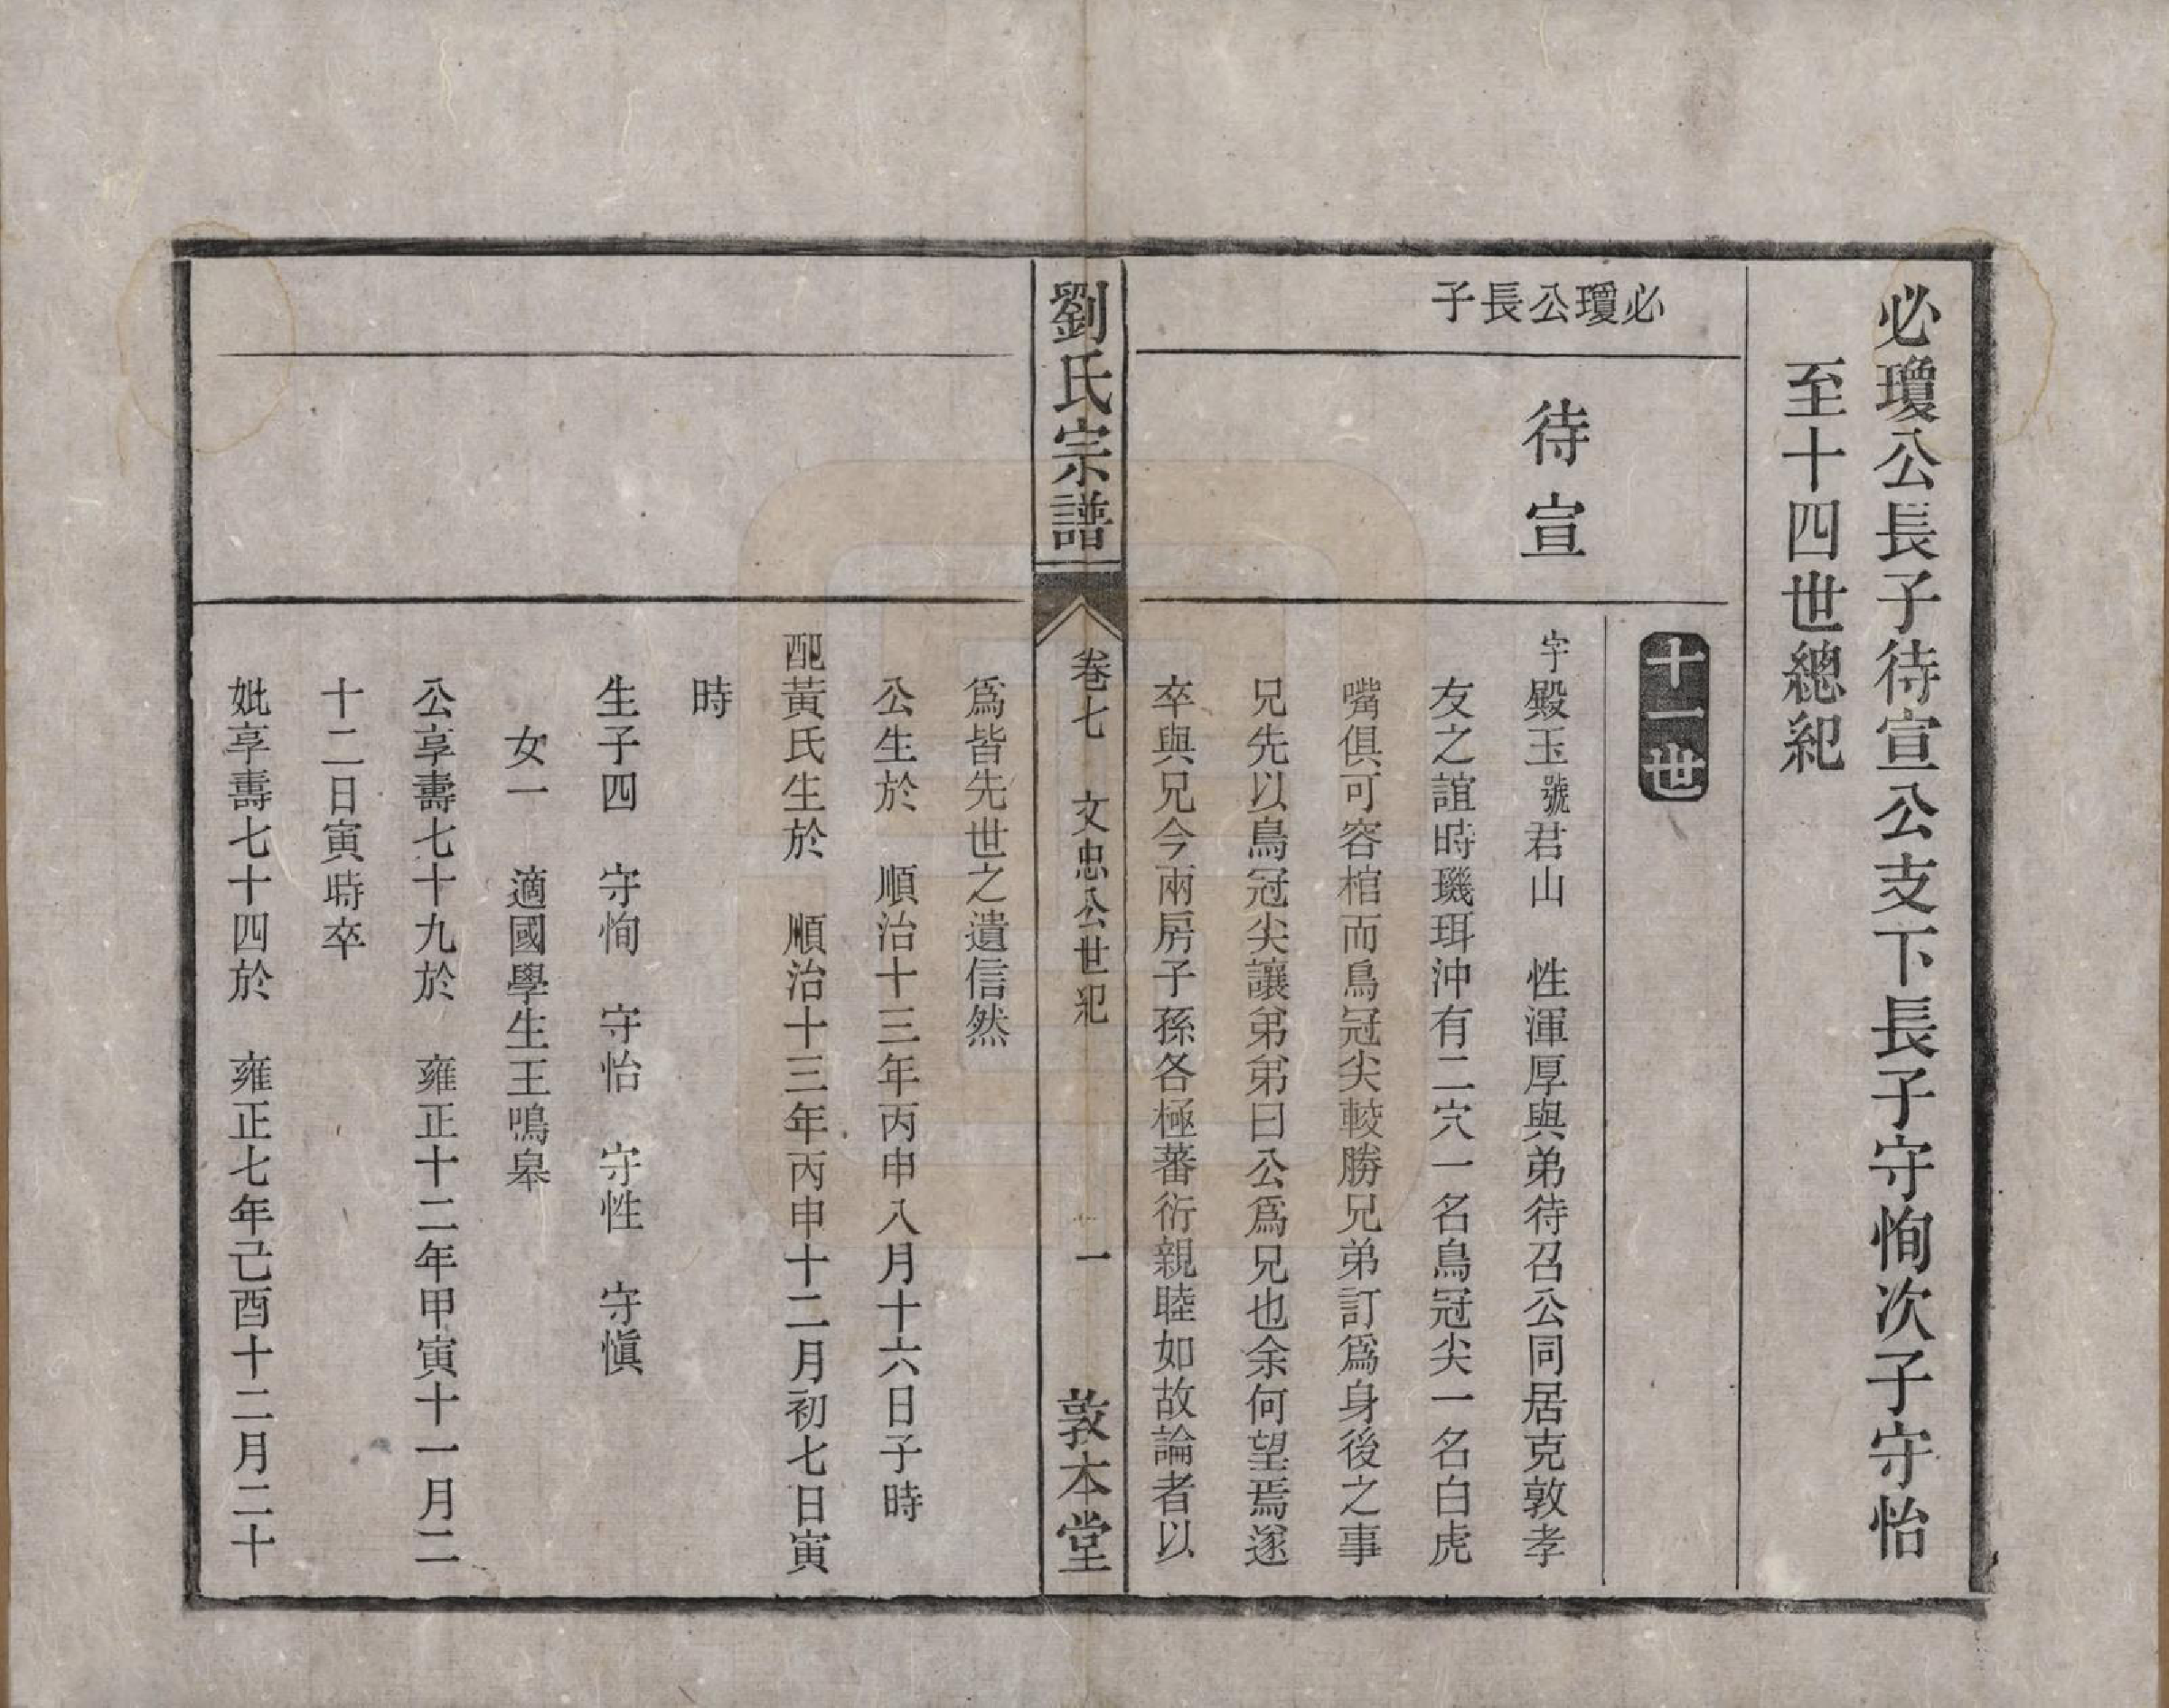 必瓊公長子待宣公支下長子守恂次子守怡
至十四世總紀
必瓊公長子
待宣
十一世
字殿玉號君山　性渾厚與弟待召公同居克敦孝
友之誼時璣珥沖有二穴一名鳥冠尖一名白虎
嘴俱可容棺而鳥冠尖較勝兄弟訂爲身後之事
兄先以鳥冠尖讓弟弟曰公爲兄也余何望焉遂
卒與兄今兩房子孫各極蕃衍親睦如故論者以
劉氏宗譜
卷七　文忠公世紀
一
敦本堂
爲皆先世之遺信然
公生於　順治十三年丙申八月十六日子時
配黃氏生於　順治十三年丙申十二月初七日寅
時
生子四　守恂　守怡　守性　守愼
女一　適國學生王鳴皋
公享壽七十九於　雍正十二年甲寅十一月二
十二日寅時卒
妣享壽七十四於　雍正七年己酉十二月二十